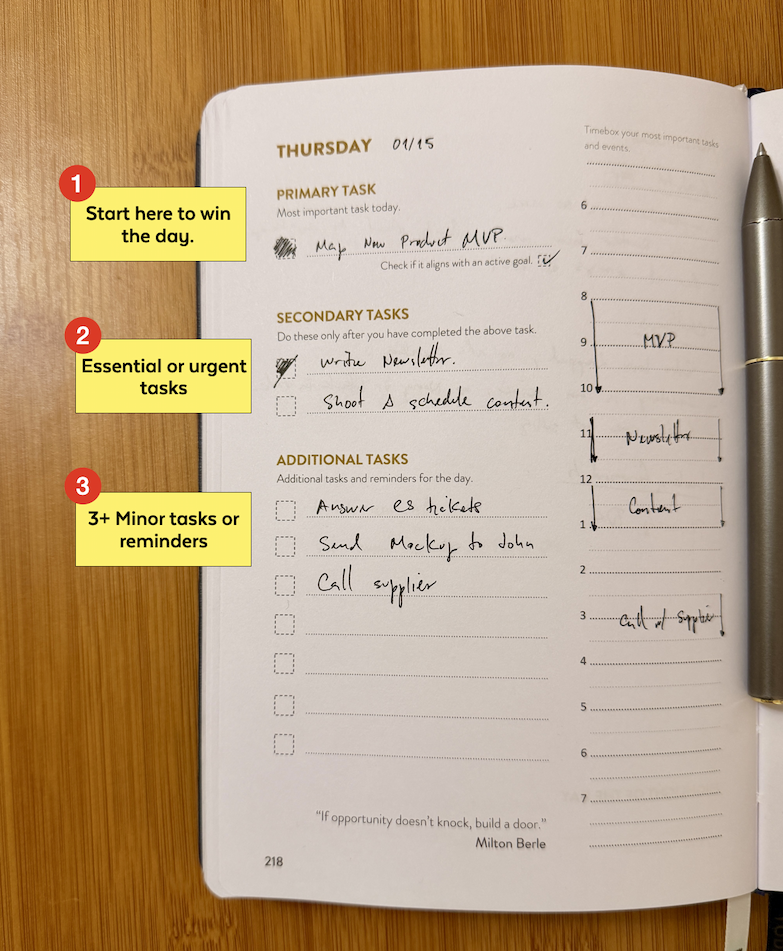 THURSDAY 01/15
PRIMARY TASK
Most important task today.
Map New Product MVP.
Check if it aligns with an active goal.
SECONDARY TASKS
Do these only after you have completed the above task.
Write Newsletter.
Shoot & schedule content.
ADDITIONAL TASKS
Additional tasks and reminders for the day.
Answer cs tickets
Send Mockup to John
Call supplier
"If opportunity doesn't knock, build a door."
Milton Berle
218
Timebox your most important tasks
and events.
6
7
8
9 MVP
10
11 Newsletter
12
Content
1
2
3 Call w/ Supplier
4
5
6
7
1
Start here to win
the day.
2
Essential or urgent
tasks
3
3+ Minor tasks or
reminders